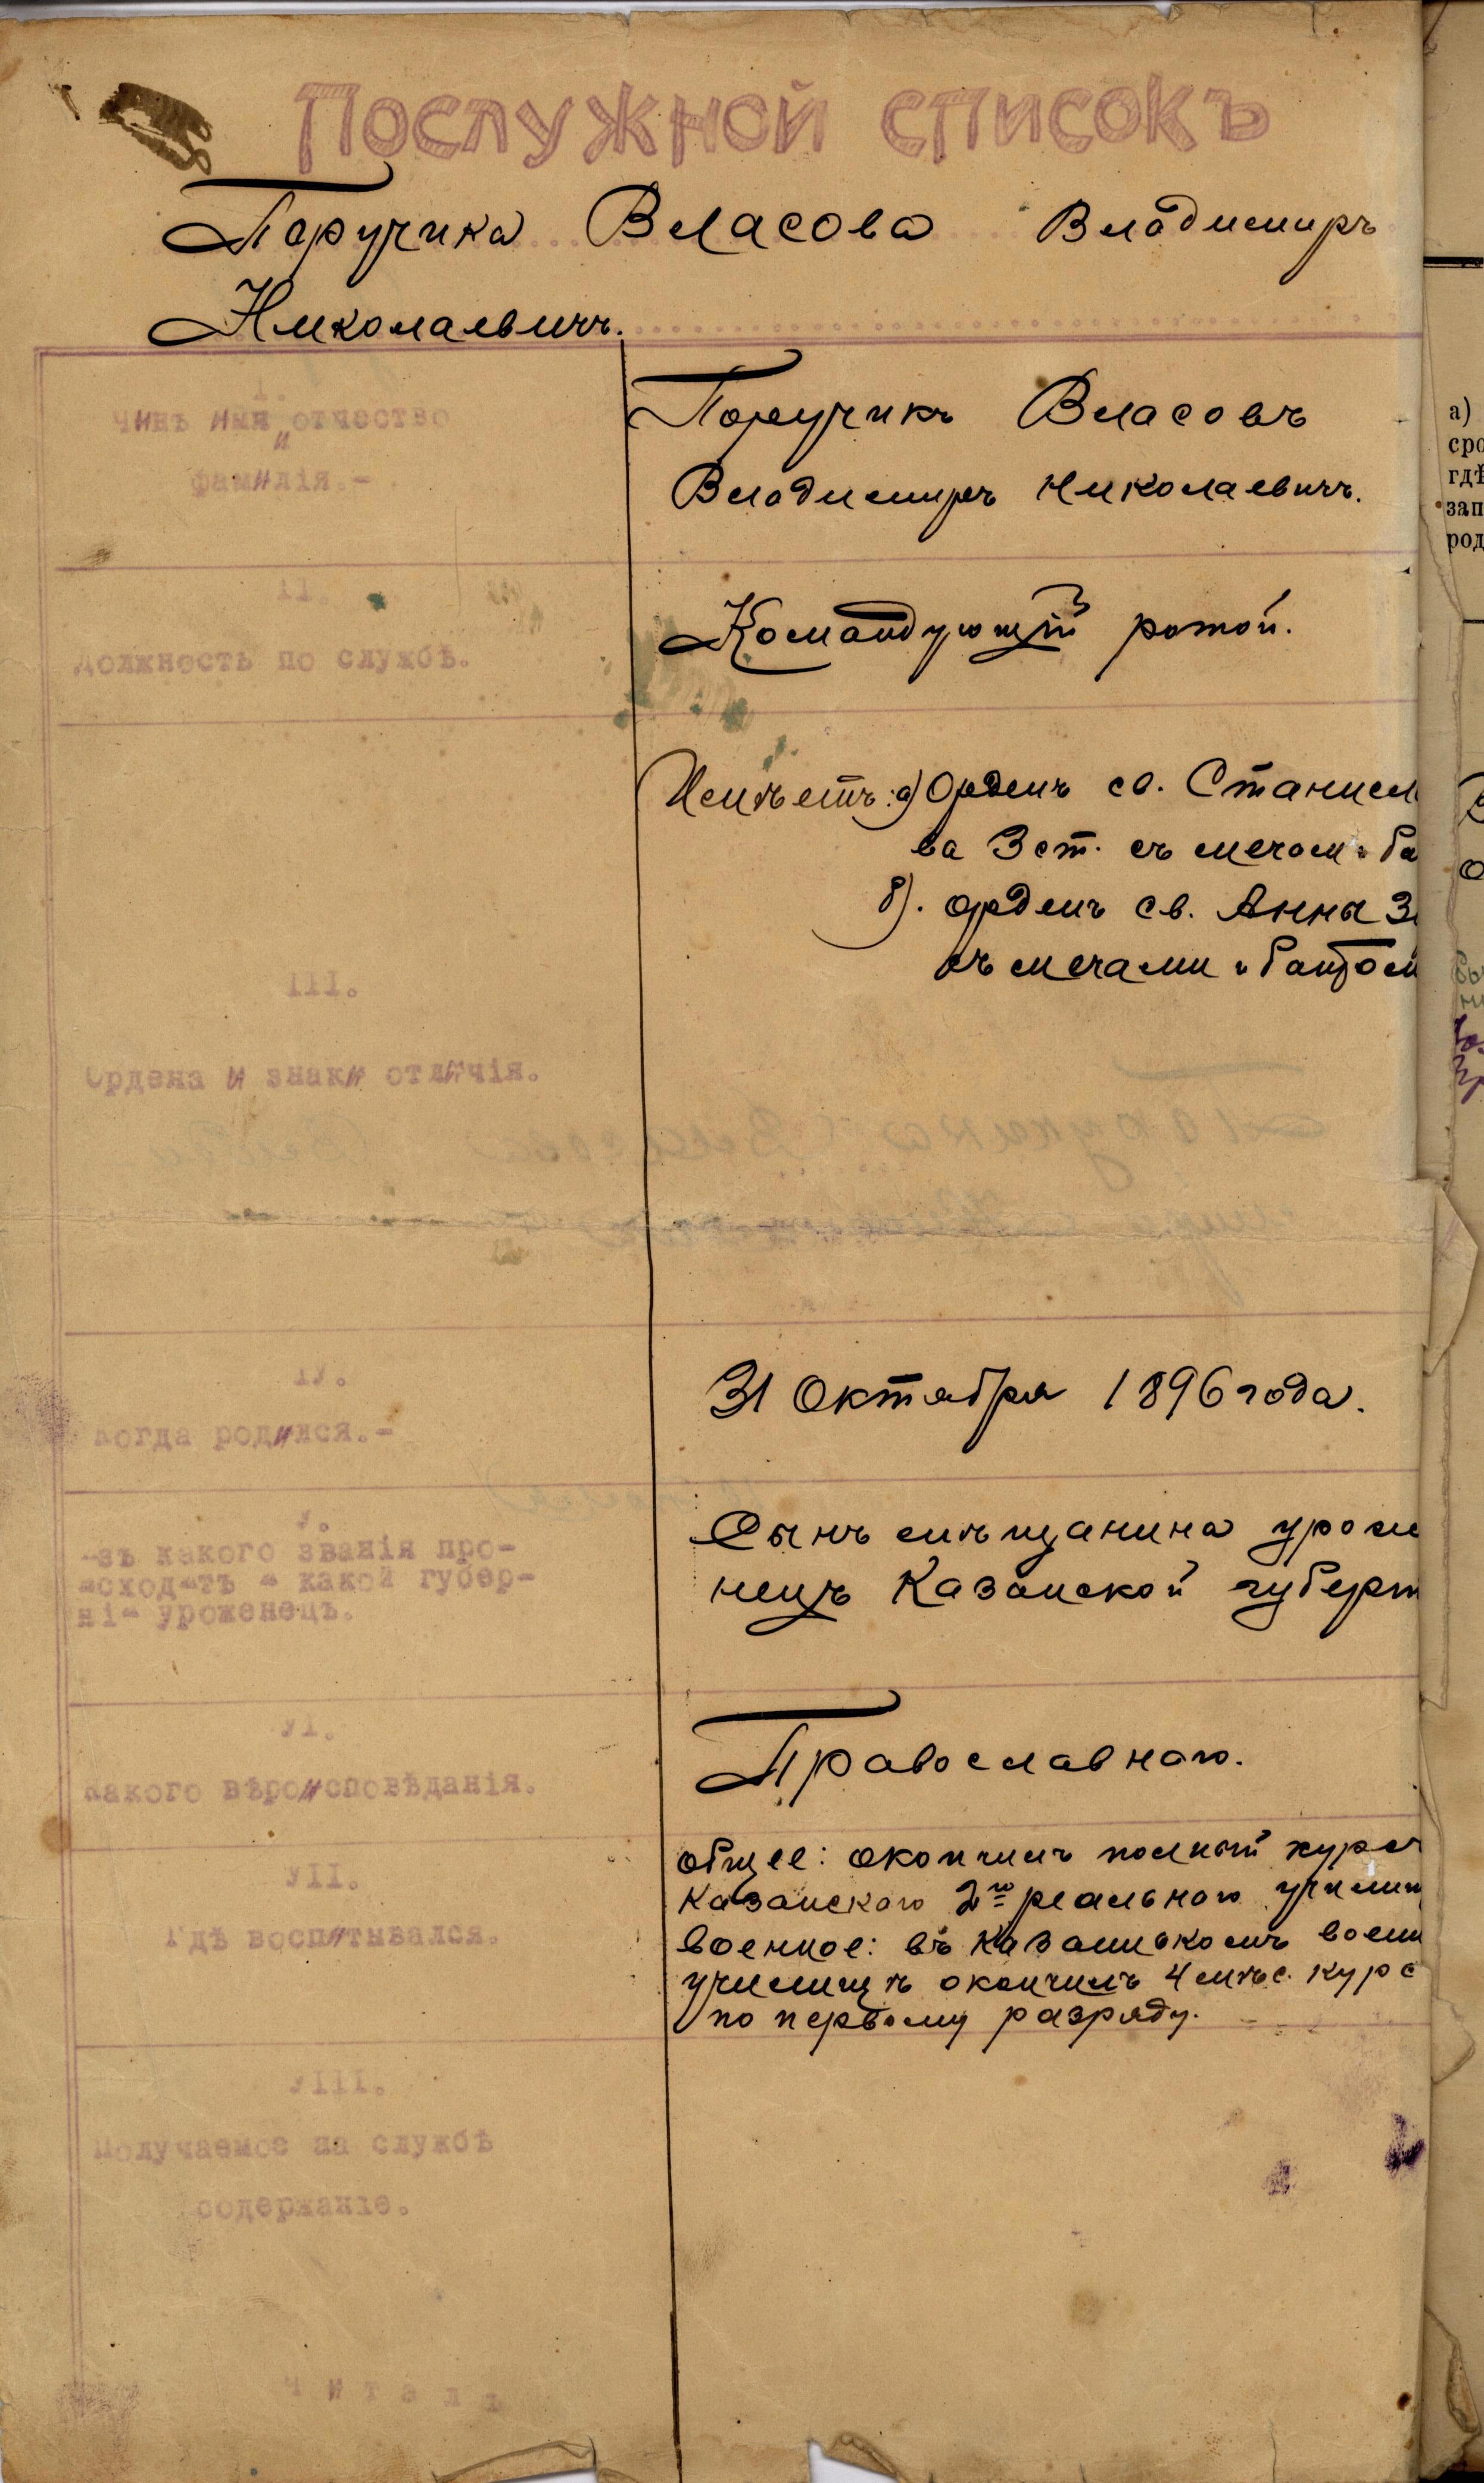 Послужной списокъ
Поручика Власова Владимиръ
Николаевичъ.
I.
Чинъ имя отчество
и
фамилія.-
Поручикъ Власовъ
Владимиръ Николаевичъ.
II.
Должность по службѣ.
Командующій ротой.
III.
Ордена и знаки отличія.
Имѣетъ: а) Орденъ св. Станисл
ва 3 ст. съ мечом и ба
б). орденъ св. Анны 3
съ мечами и бантом
IV.
Когда родился.-
31 Октября 1896 года.
V.
Изъ какого званія про-
исходитъ и какой губер-
ніи уроженецъ.
Сынъ мѣщанина уроже
нецъ Казанской губерн
VI.
Какого вѣроисповѣданія.
Православнаго.
VII.
Гдѣ воспитывался.
общее: окончилъ полный курс
Казанскаго 2го реальнаго училищ
военное: въ Казанскомъ воен
училищѣ окончилъ 4 мѣс. курс
по первому разряду.
VIII.
Получаемое на службѣ
содержаніе.
а)
сро
гдѣ
зап
род